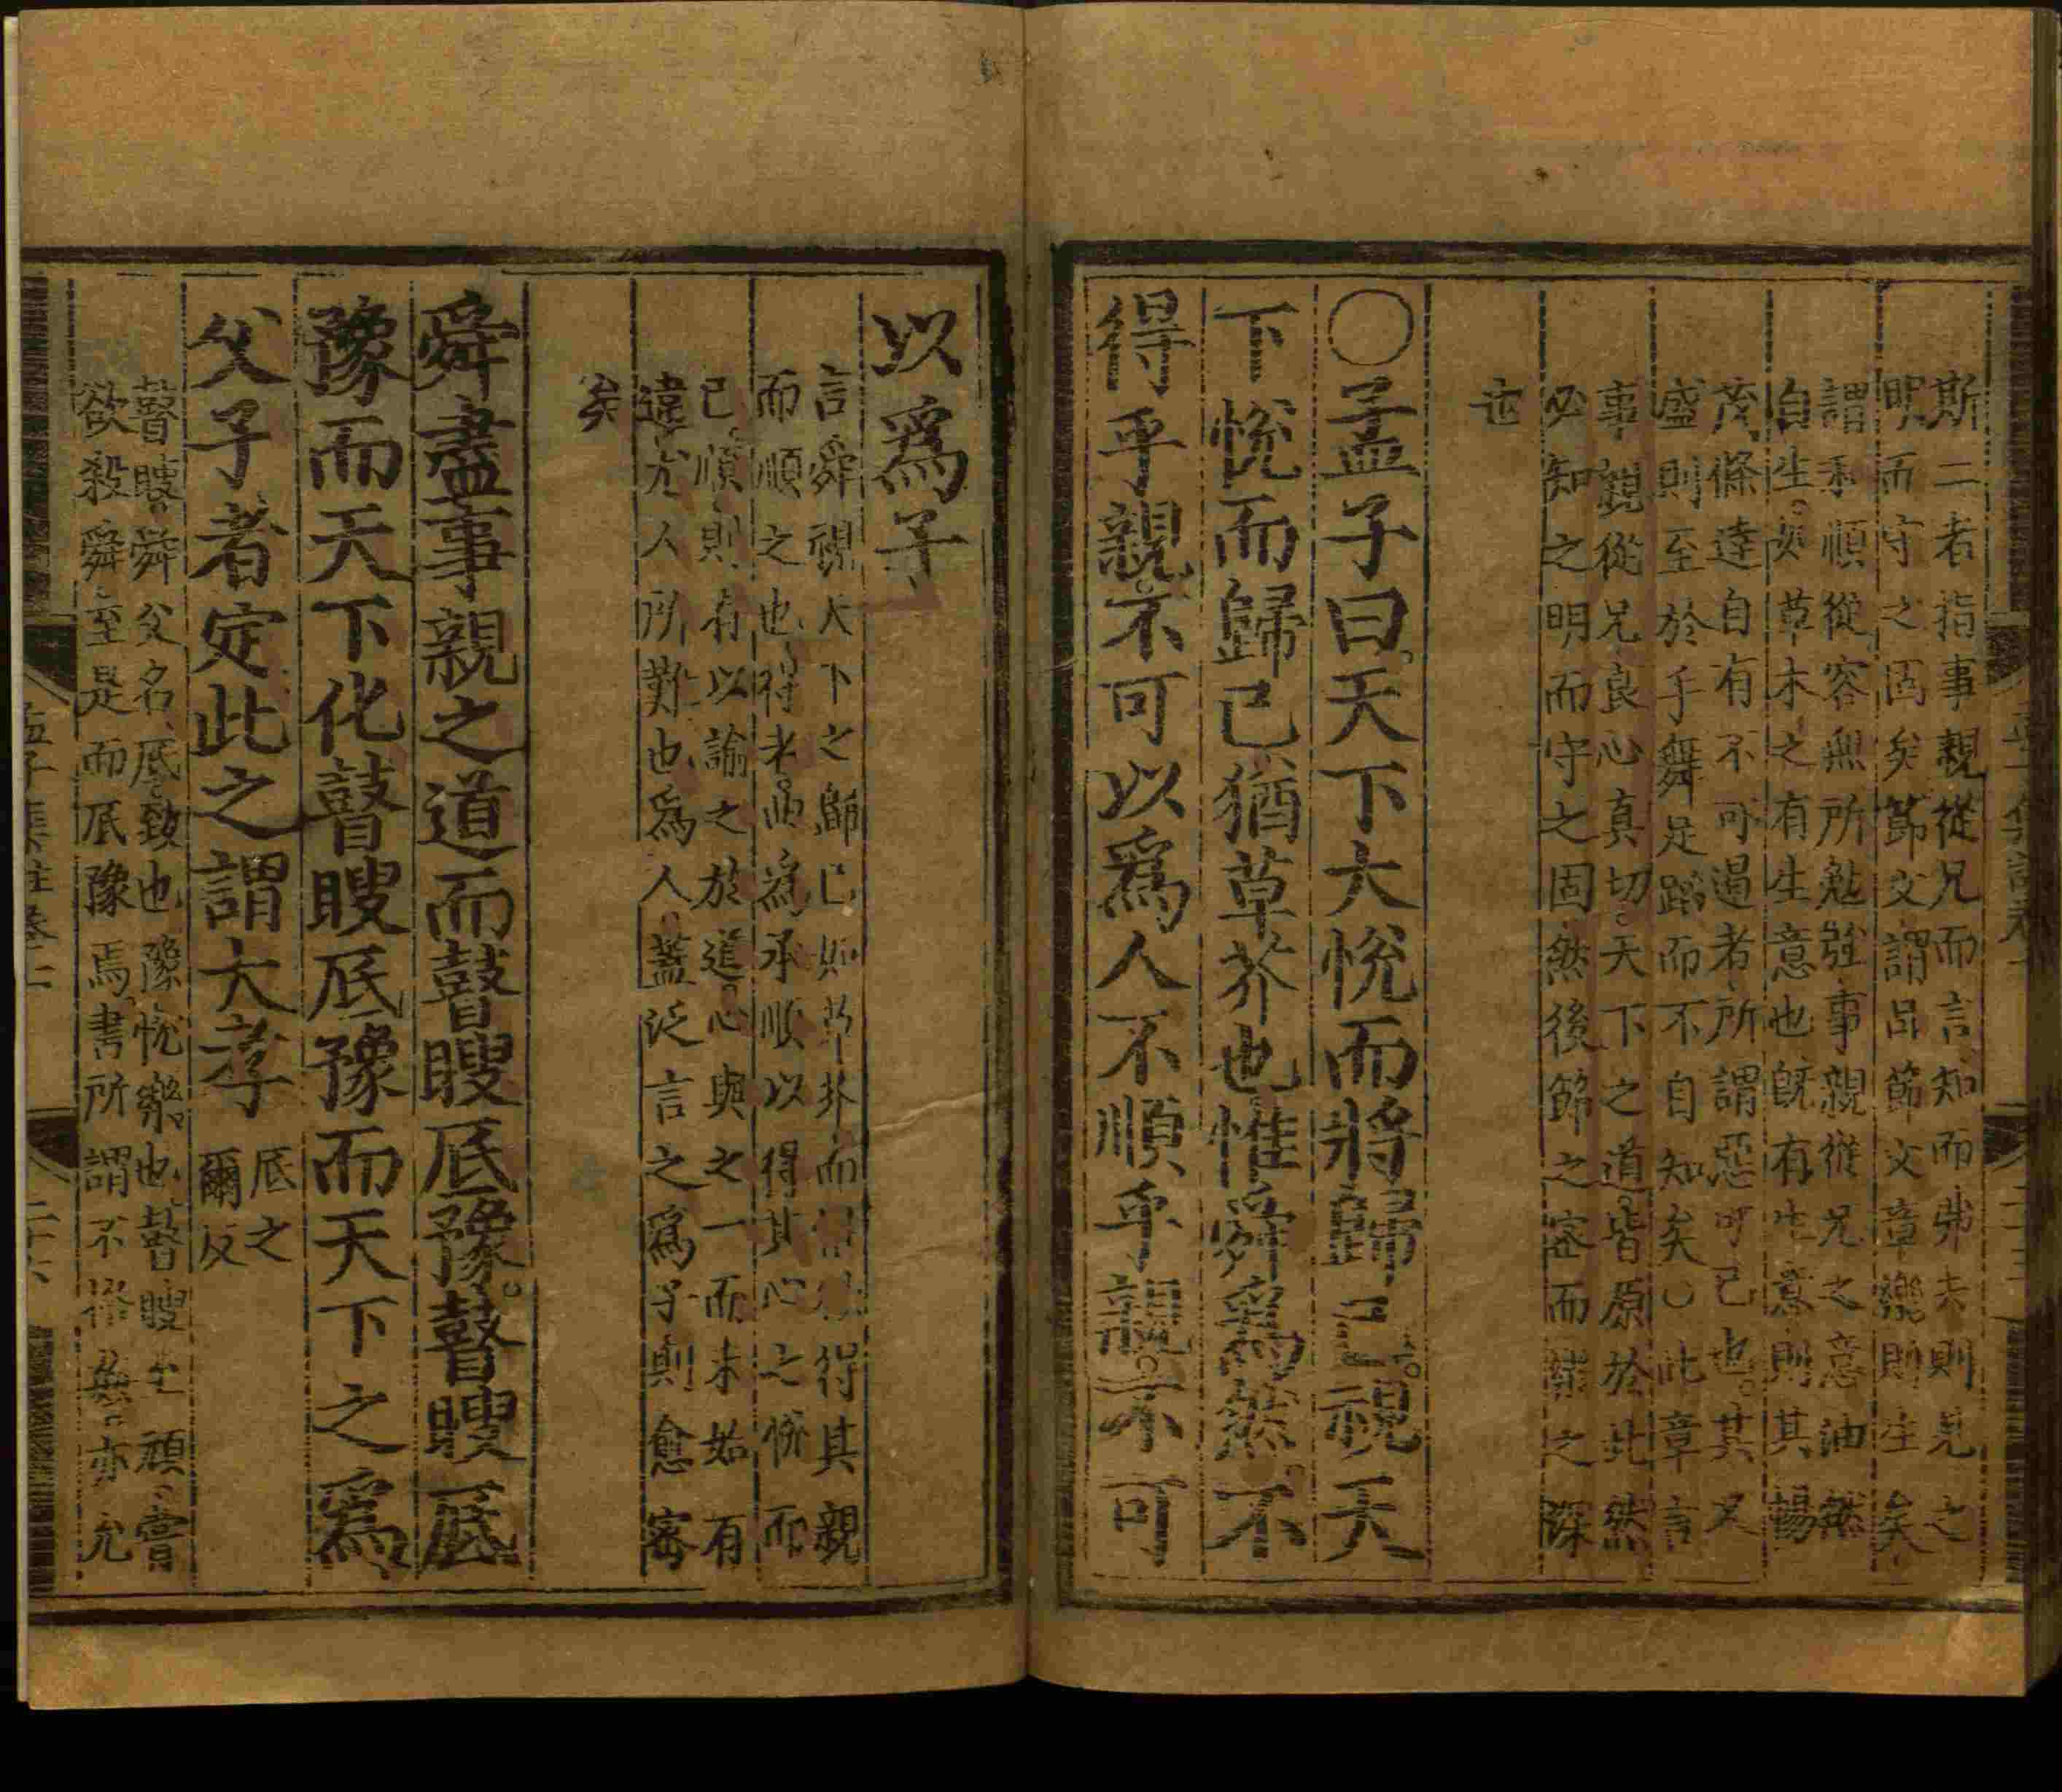 斯二者指事親從兄而言知而弗去則見之
明而守之固矣節文謂品節文章樂則生矣
謂和順從容無所勉強事親從兄之意油然
自生如草木之有生意也既有生意則其暢
茂條達自有不可遏者所謂惡可已也其又
盛則至於手舞足蹈而不自知矣○此章言
事親從兄良心真切天下之道皆原於此然
必知之明而守之固然後節之密而樂之深
也
○孟子曰天下大悅而將歸己視天
下悅而歸己猶草芥也惟舜爲然不
得乎親不可以爲人不順乎親不可
以爲子
言舜視天下之歸己如草芥而得其親
而順之也得者曲爲承順以得其心之悅而
已順則有以諭之於道心與之一而未始有
違尤人所難也爲人蓋泛言之爲子則愈密
矣
舜盡事親之道而瞽瞍厎豫瞽瞍厎
豫而天下化瞽瞍厎豫而天下之爲
父子者定此之謂大孝
厎之
爾反
瞽瞍舜父名厎致也豫悅樂也瞽瞍至頑嘗
欲殺舜至是而厎豫焉書所謂不格姦亦允
孟子集註卷
二十六